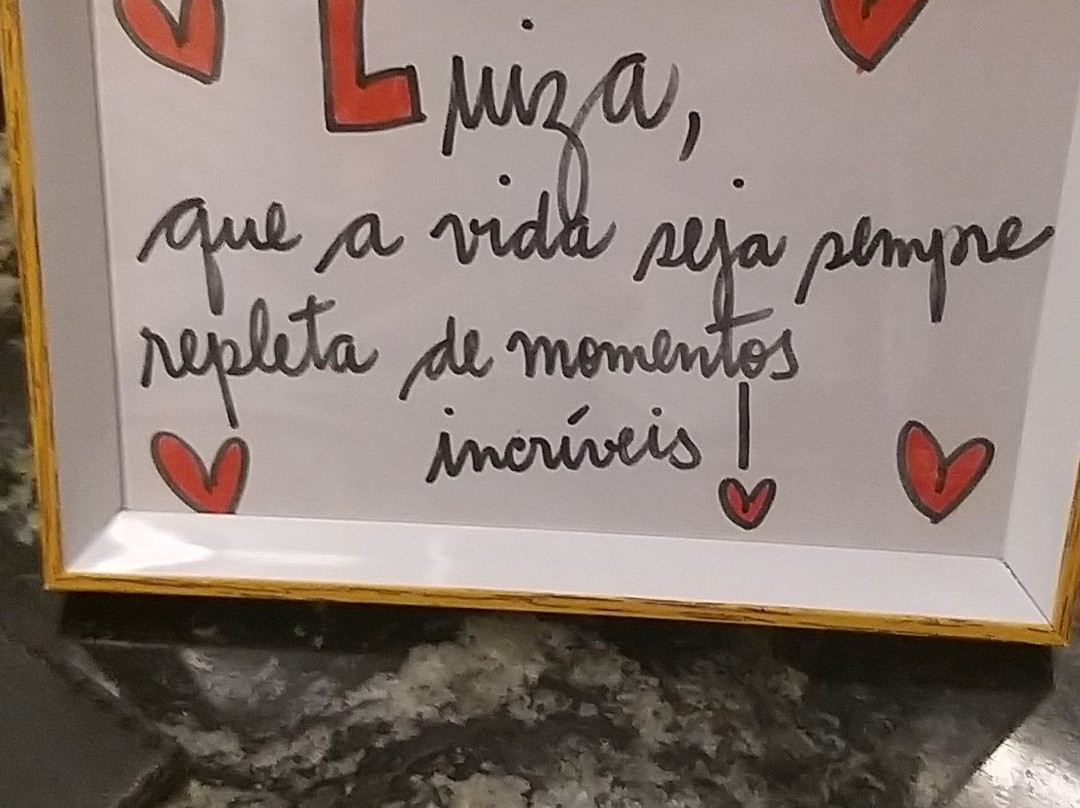 Luiza,
que a vida seja sempre
repleta de momentos
incríveis!